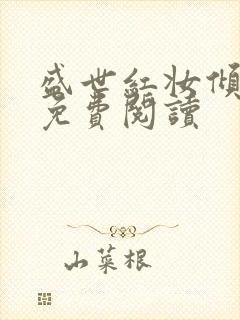 盛世红妆倾
免費閱讀
山菜根